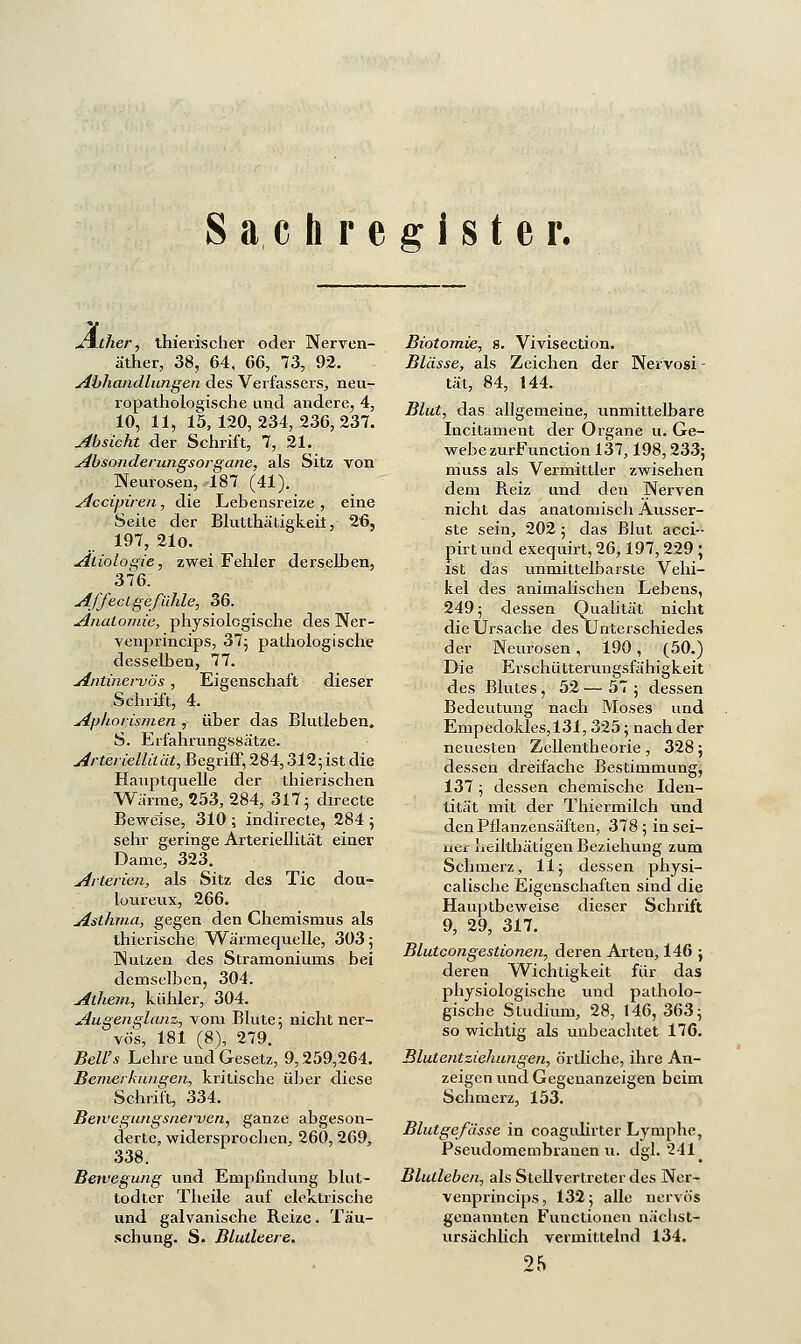 Sachregister.
Äther, thierischer oder Nerven-
äther, 38, 64, 66, 73, 92.
Abhandlungen des Verfassers, neu-
ropathologische und andere, 4,
10, 11, 15, 120, 234, 236, 237.
Absicht der Schrift, 7, 21.
Absonderungsorgane, als Sitz von
Neurosen, 187 (41).
Accipiren, die Lebensreize, eine
Seite der Blutthätigkeit, 26,
197, 21o.
Ätiologie, zwei Fehler derselben,
376.
Affectgefühle, 36.
Anatomie, physiologische des Ner-
venprincips, 37; pathologische
desselben, 77.
Antinervös, Eigenschaft dieser
Schrift, 4.
Aphorismen, über das Blutleben.
S. Erfahrungssätze.
Arteriellität, Begriff, 284, 312; ist die
Hauptquelle der thierischen
Wärme, 253, 284, 317; directe
Beweise, 310; indirecte, 284;
sehr geringe Arteriellität einer
Dame, 323.
Arterien, als Sitz des Tic dou-
loureux, 266.
Asthma, gegen den Chemismus als
thierische Wärmequelle, 303;
Nutzen des Stramoniums bei
demselben, 304.
Athem, kühler, 304.
Augenglanz, vom Blute; nicht ner-
vös, 181 (8), 279.
Bell's Lehre und Gesetz, 9, 259, 264.
Bemerkungen, kritische über diese
Schrift, 334.
Bewegungsnerven, ganze abgeson-
derte, widersprochen, 260, 269,
338.
Bewegung und Empfindung blut-
todter Theile auf elektrische
und galvanische Reize. Täu-
schung. S. Blutleere.
Biotomie, s. Vivisection.
Blässe, als Zeichen der Nervosi-
tät, 84, 144.
Blut, das allgemeine, unmittelbare
Incitament der Organe u. Ge-
webe zur Function 137, 198, 233;
muss als Vermittler zwisehen
dem Reiz und den Nerven
nicht das anatomisch Äusser-
ste sein, 202; das Blut acci-
pirt und exequirt, 26, 197, 229;
ist das unmittelbarste Vehi-
kel des animalischen Lebens,
249; dessen Qualität nicht
die Ursache des Unterschiedes
der Neurosen, 190, (50.)
Die Erschütterungsfähigkeit
des Blutes, 52 — 57; dessen
Bedeutung nach Moses und
Empedokles, 131, 325; nach der
neuesten Zellentheorie, 328;
dessen dreifache Bestimmung,
137; dessen chemische Iden-
tität mit der Thiermilch und
den Pflanzensäften, 378; in sei-
ner heilthätigen Beziehung zum
Schmerz, 11; dessen physi-
calische Eigenschaften sind die
Hauptbeweise dieser Schrift
9, 29, 317.
Blutcongestionen, deren Arten, 146;
deren Wichtigkeit für das
physiologische und patholo-
gische Studium, 28, 146, 363;
so wichtig als unbeachtet 176.
Blutentziehungen, örtliche, ihre An-
zeigen und Gegenanzeigen beim
Schmerz, 153.
Blutgefässe in coagulirter Lymphe,
Pseudomembranen u. dgl. 241.
Blutleben, als Stellvertreter des Ner-
venprincips, 132; alle nervös
genannten Functionen nächst-
ursächlich vermittelnd 134.
25